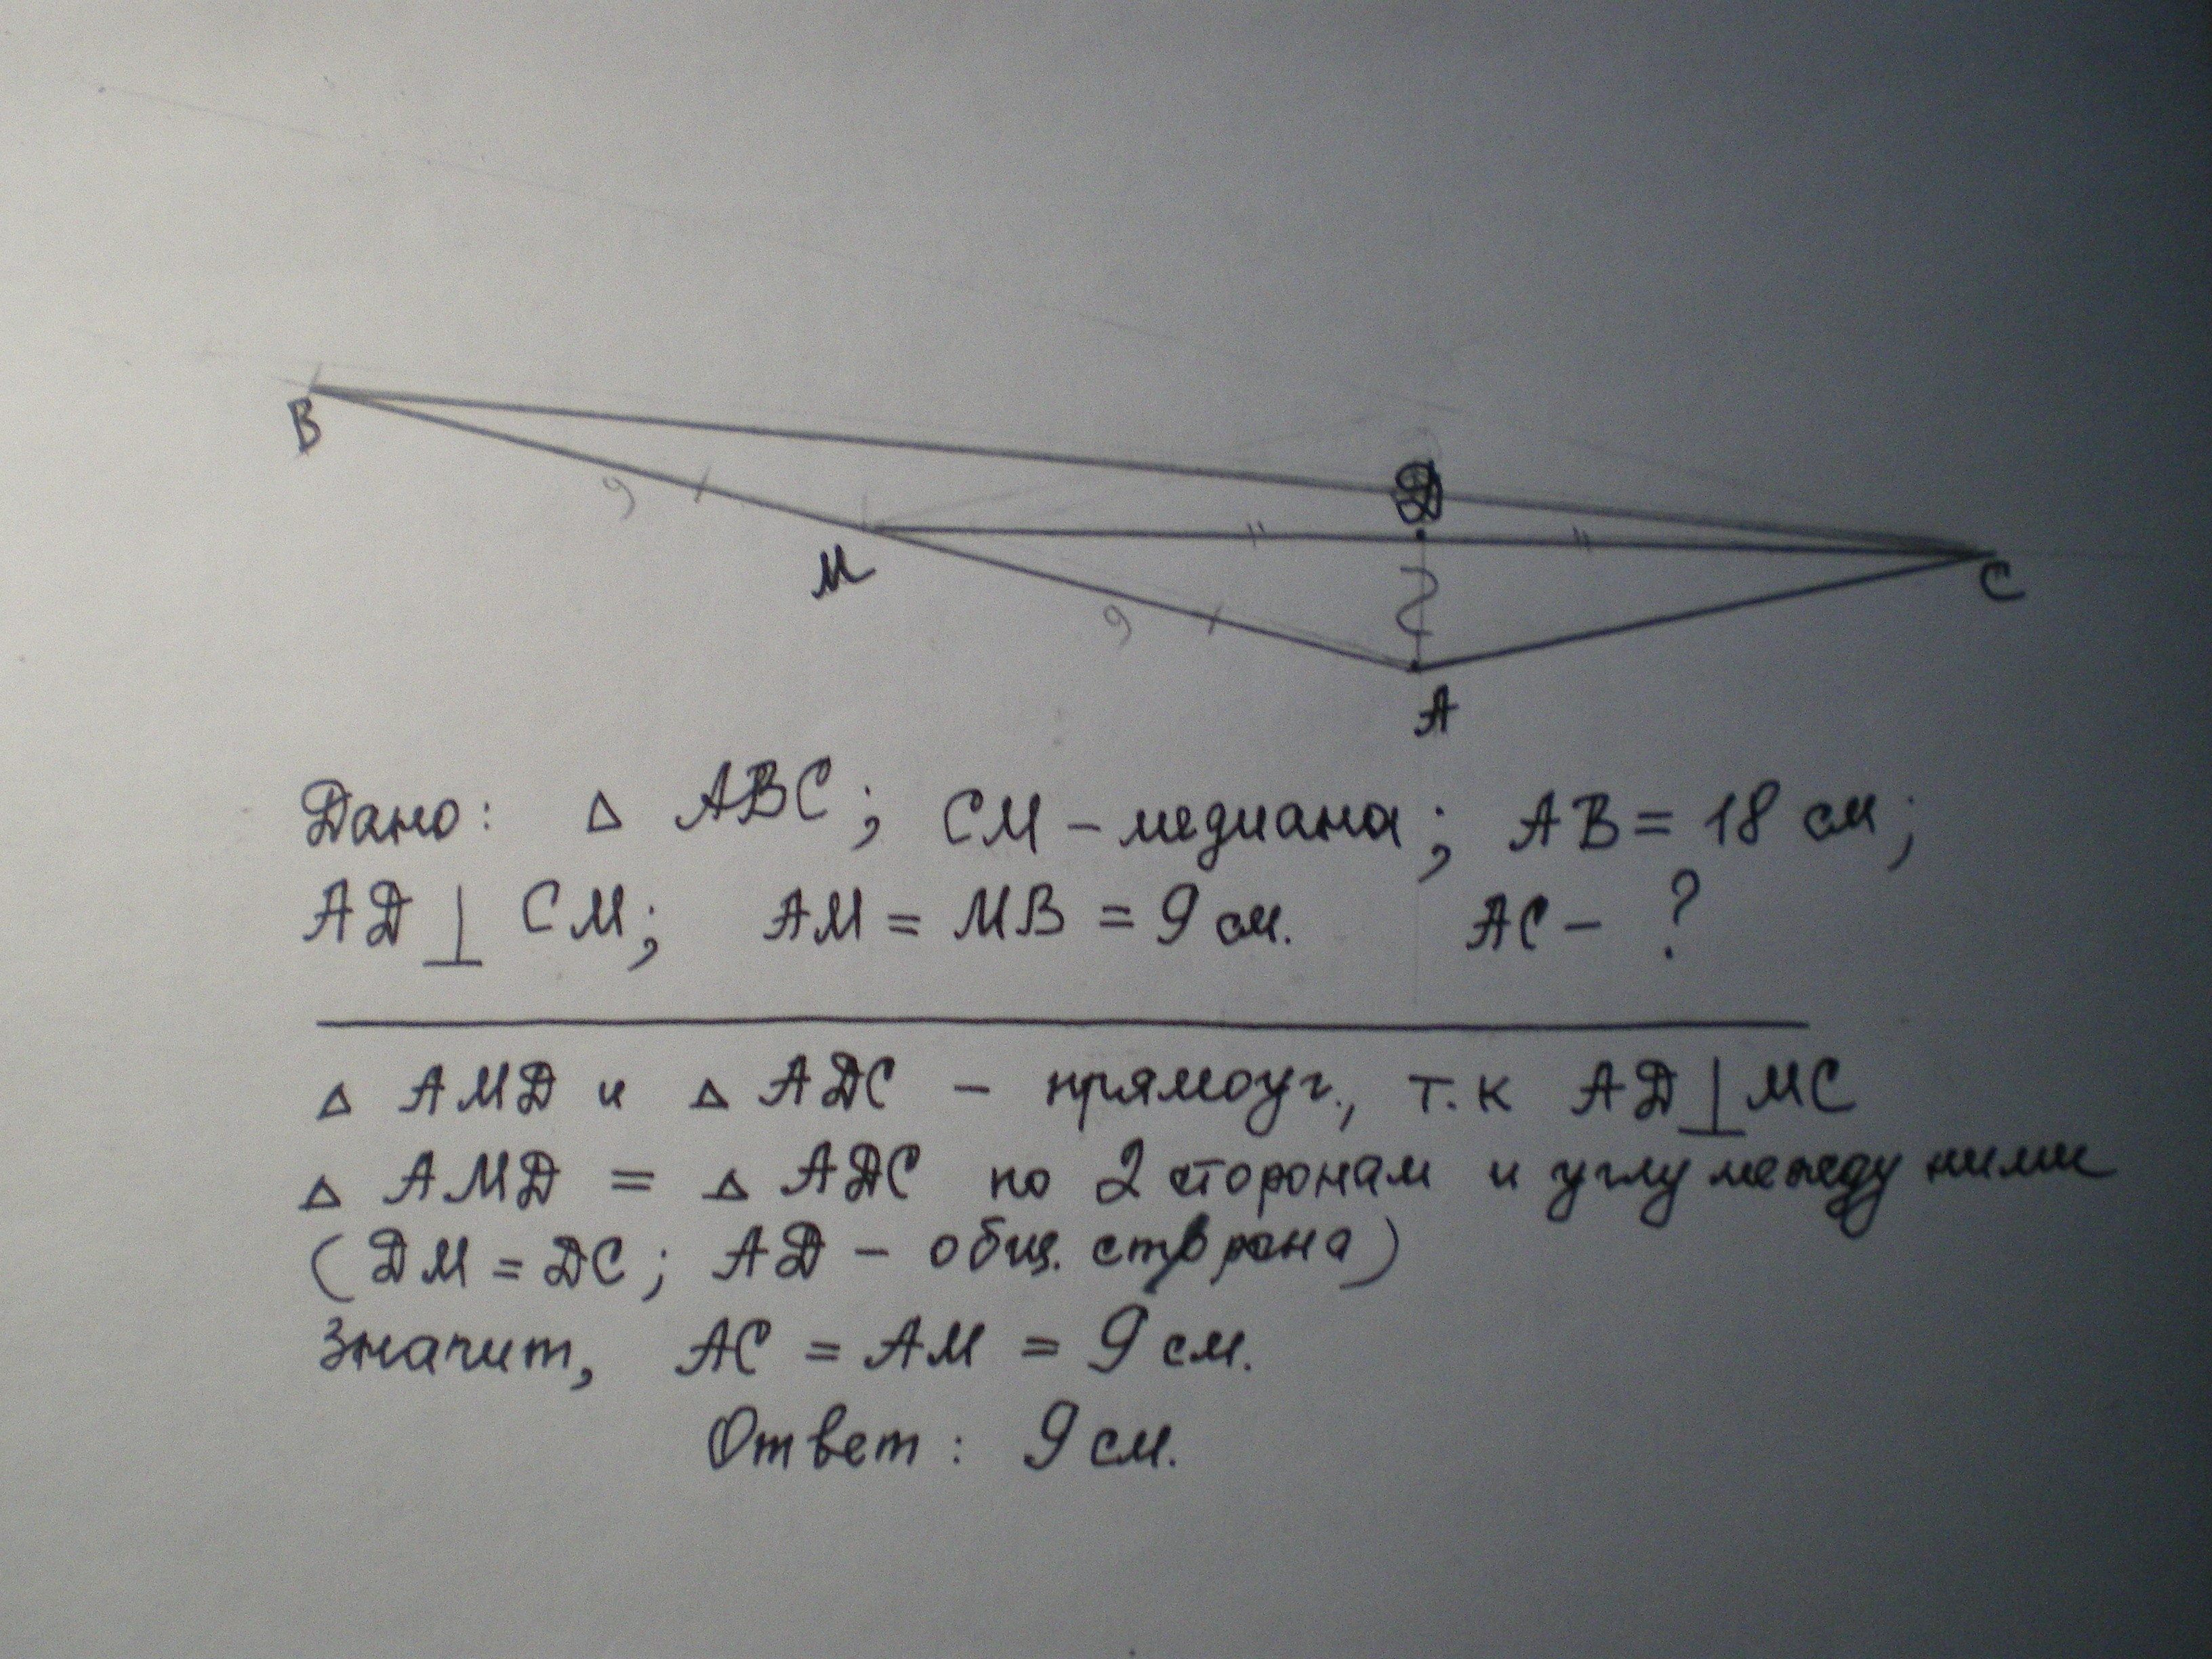 B
9
M
9
D
C
A
Дано: △ ABC; CM – медиана; AB = 18 см;
AD ⊥ CM; AM = MB = 9 см. AC – ?
△ AMD и △ ADC – прямоуг., т.к AD ⊥ MC
△ AMD = △ ADC по 2 сторонам и углу между ними
(DM = DC; AD – общ. сторона)
Значит, AC = AM = 9 см.
Ответ: 9 см.